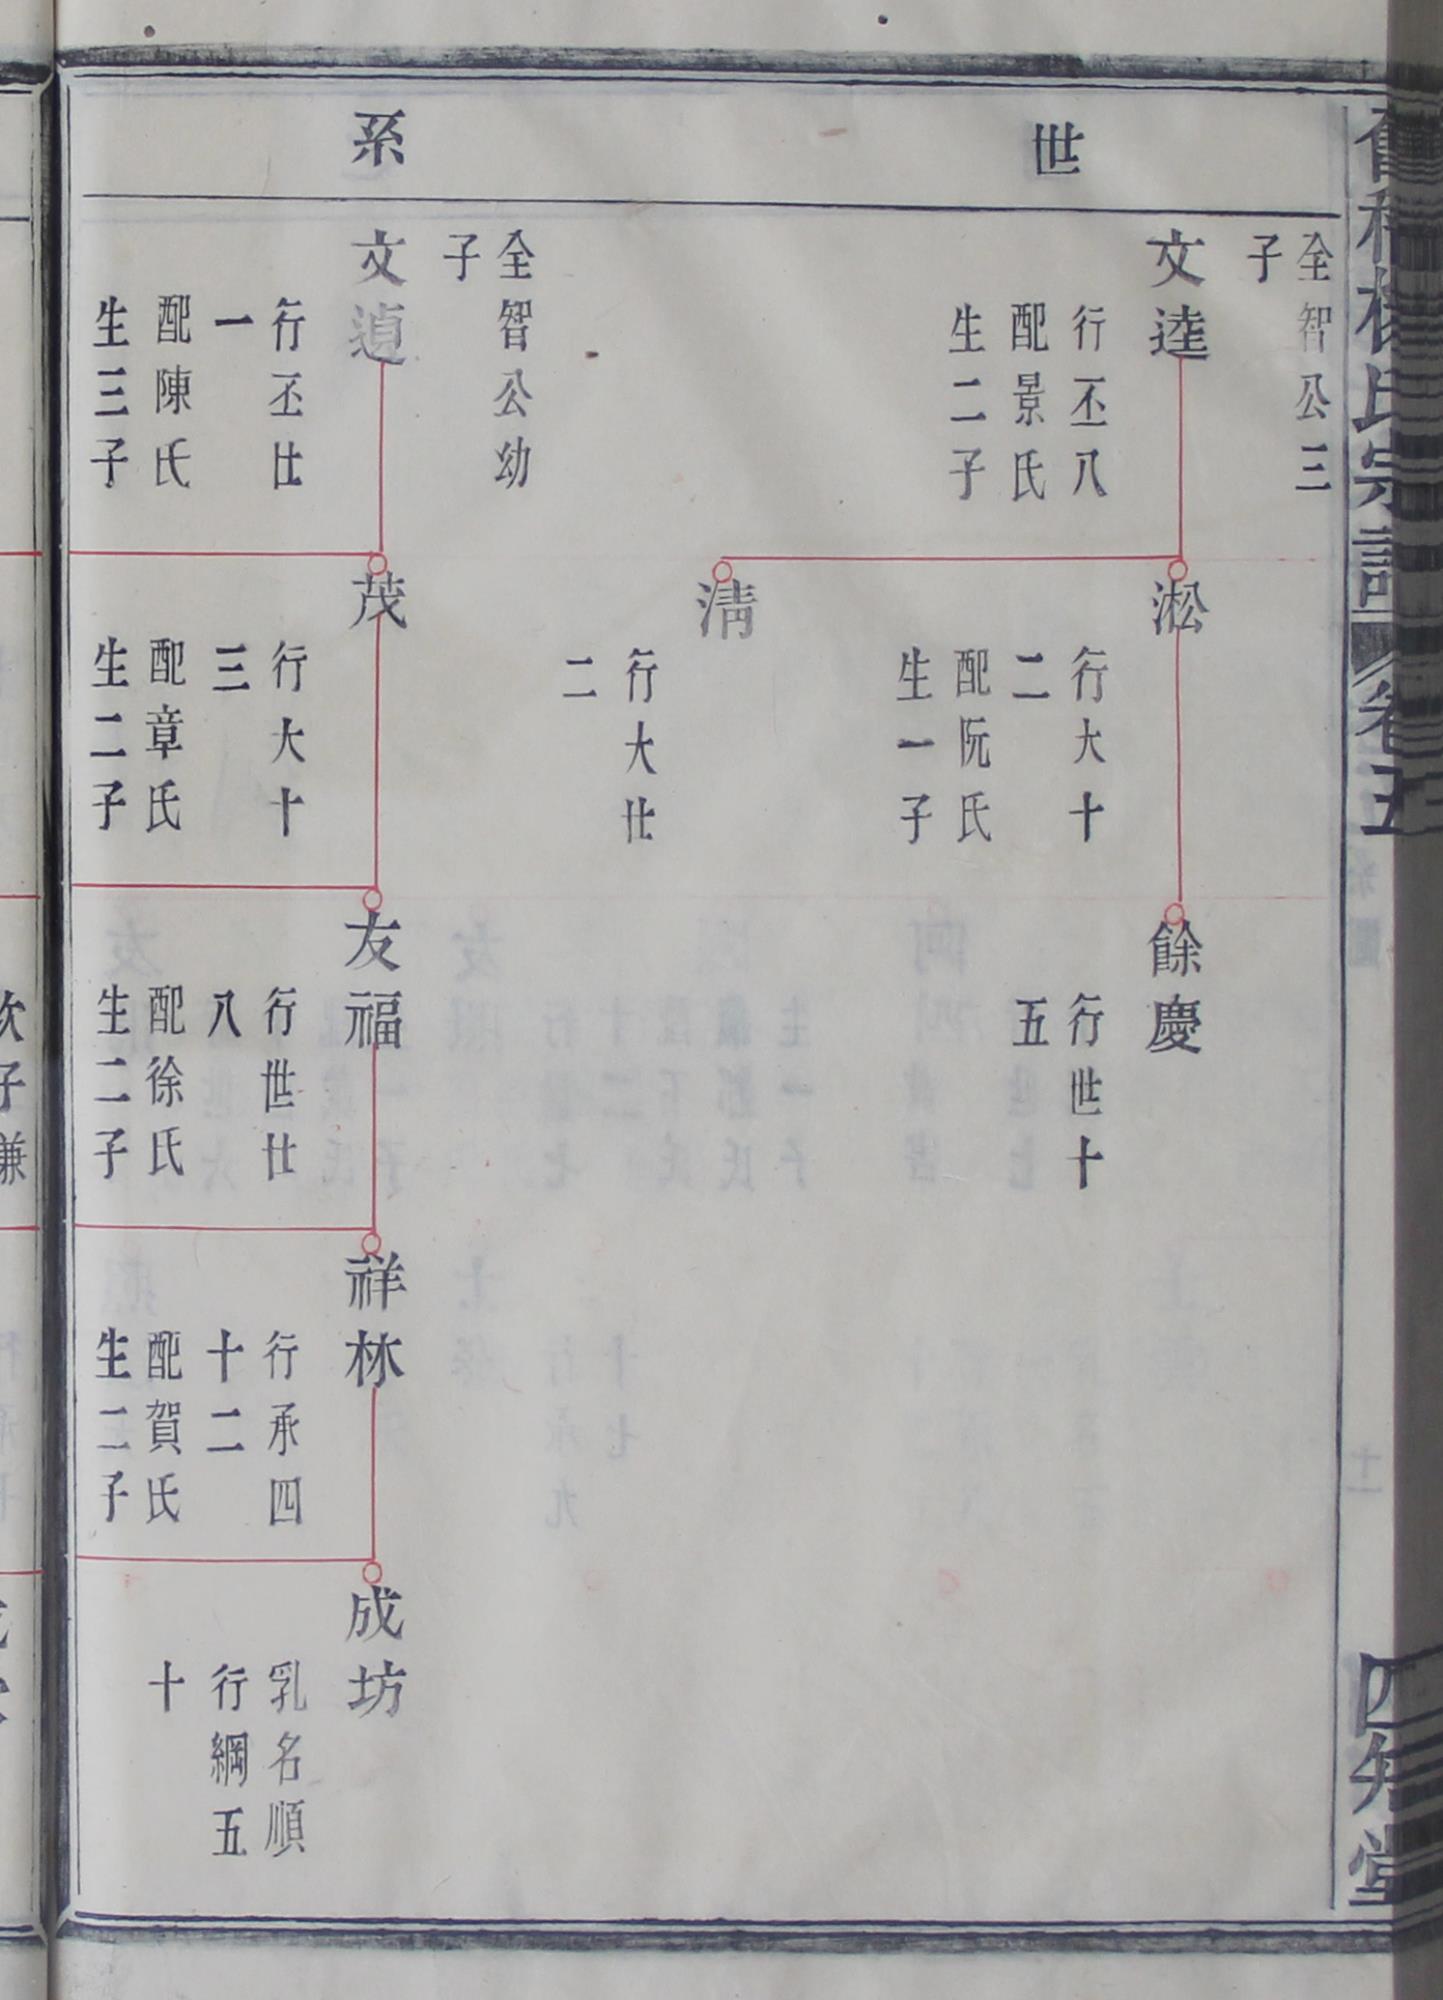 世系
全智公三
子
文逵
行丕八
配景氏
生二子
全智公幼
子
文遉
行丕廿
一
配陳氏
生三子
淞
行大十
二
配阮氏
生一子
淸
行大廿
二
茂
行大十
三
配章氏
生二子
餘慶
行世十
五
友福
行世廿
八
配徐氏
生二子
祥林
行承四
十二
配賀氏
生二子
成坊
乳名順
行綱五
十
楊氏宗譜
卷五
四知堂